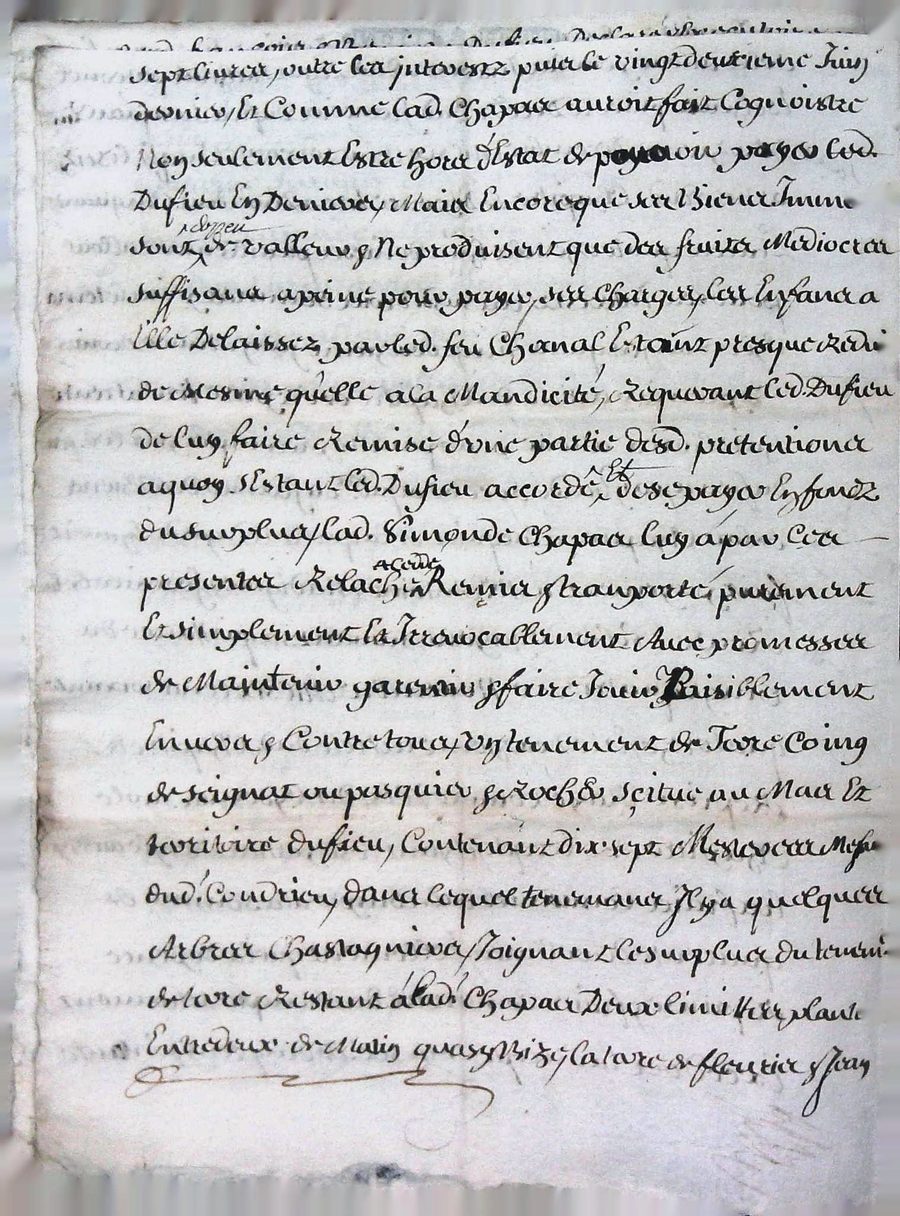 sept livres, outre les interestz puis le vingt deuxieme Juin
dernier, Et Comme lad. Chapas auroit fait Cognoistre
Non seulement Estre hors d'Estat de pouvoir payer led.
Dufieu En Deniers, Mais Encore que ses Biens Imme
sont de peu de valleur & Ne produisent que des fruits Mediocres
suffisans a peine pour payer ses Charges, les Enfans a
Elle Delaissez par led. feu Chanal Estant presque Redui
de Mesme qu'elle a la Mandicité, Requerant led. Dufieu
de luy faire Remise d'une partie desd. pretentions
a quoy s'Estant led. Dufieu accordé, Et de se payer En fondz
du surplus, lad. Simonde Chapas luy á par les
presentes Relaché, cedé Remis & transporté, purement
Et simplement Et Irrevocablement Avec promesses
de Maintenir garentir & faire Jouir Paisiblement
Envers & Contre tous, Un tenement de Terre Coing
de seignat ou pasquier & Rocher, scitué au Mas Et
territoire dufieu, Contenant dix sept Mesteres Mesu
dud. Condrieu, dans lequel tenemant Il y a quelques
Arbres Chastagniers, Joignant le surplus du tenem.
de terre Restant á lad. Chapas Deux limittes planté
Entredeux de Matin quasy Bize, la terre de fleurie & Jean